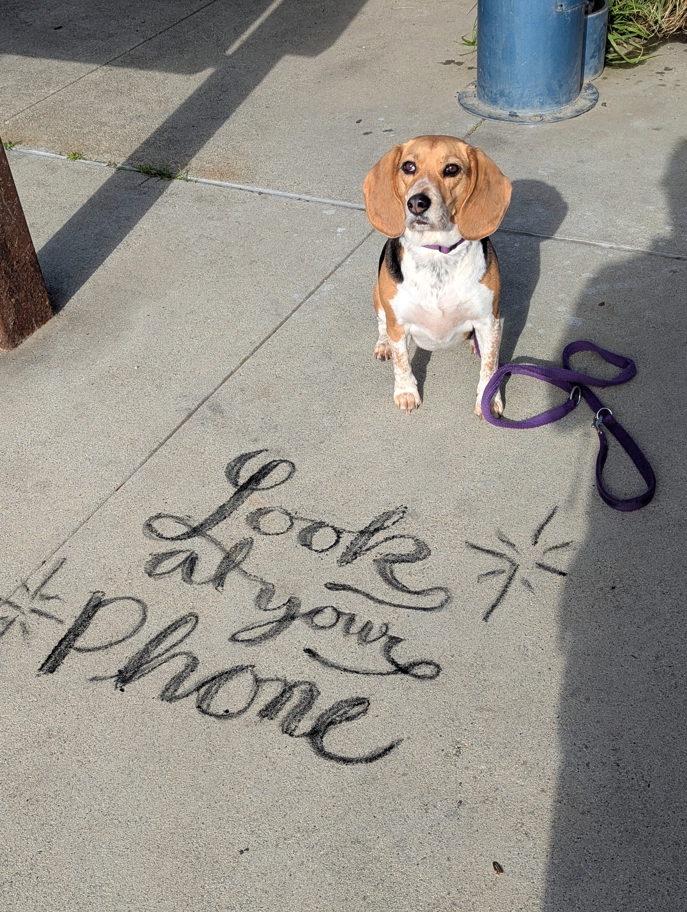 Look
at your
Phone